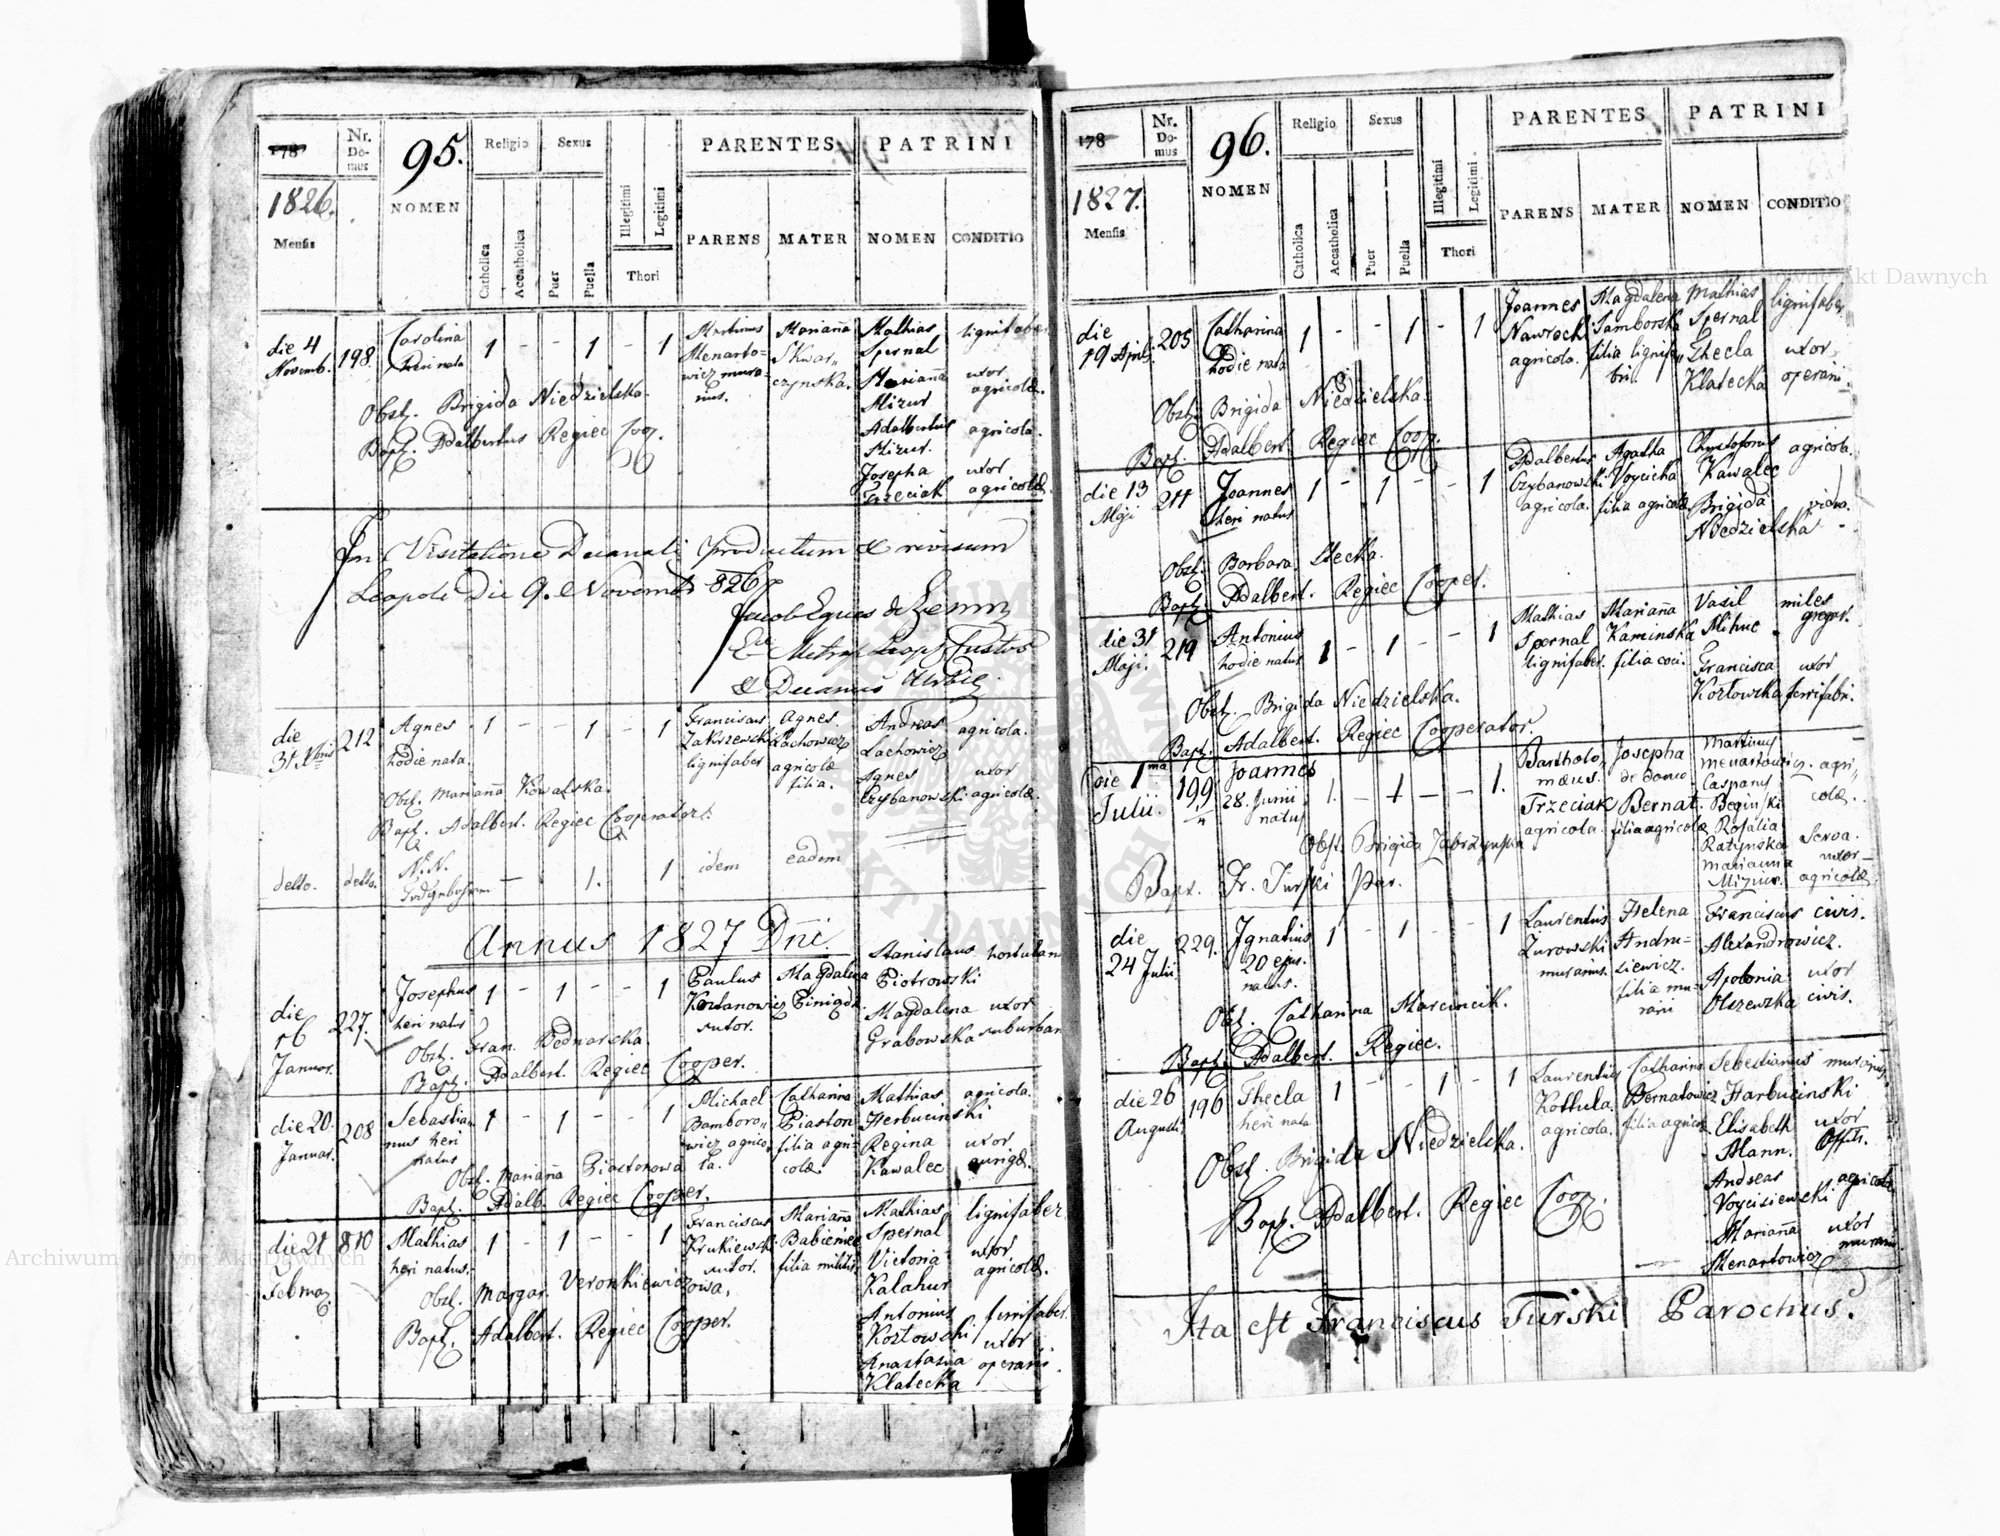 178
Nr. Domus
95.
Religio
Sexus
PARENTES
PATRINI
1826.
Mensis
NOMEN
Catholica
Accatholica
Puer
Puella
Illegitimi
Legitimi
Thori
PARENS
MATER
NOMEN
CONDITIO
die 4 Novemb. 198. Carolina heri nata 1 - - 1 - 1
Martinus Menartowicz murarius.
Marianna Skwarczynska.
Mathias Spernal lignifaber
Marianna Mizur uxor agricolæ.
Adalbertus Mizur. agricola.
Josepha Trzeciak uxor agricolæ
Obst. Brigida Niedzielska.
Bapt. Adalbertus Regiec Coop.
In Visitatione Decanali productum & revisum
Leopoli Die 9. Novemb 826
Jacob Eques de
Metrop Leop Custos
& Decanus Urbis.
die 31 Xbris 212 Agnes hodie nata 1 - - 1 - 1
Franciscus Zakrzewski lignifaber
Agnes Lachowicz agricolæ filia.
Andreas Lachowicz agricola.
Agnes Czybanowski uxor agricolæ
Obst. Mariañ Kowalska.
Bapt. Adalbert. Regiec Cooperator.
detto. detto. N.N. - 1. 1 idem eadem
Annus 1827 Dni.
die 16 Januar. 227. Josephus heri natus 1 - 1 - - 1
Paulus sutor.
Magdalena
Stanislaus Piotrowski
Magdalena Grabowska uxor suburban
Obst. Fran. Bednarska.
Bapt. Adalbert. Regiec Cooper.
die 20. Januar. 208 Sebastianus heri natus 1 - 1 - - 1
Michael Bamborowicz agricola.
Catharina Piaston filia agricolæ.
Mathias Herbucinski agricola.
Regina Kawalec uxor aurigæ.
Obst. Mariañ Piastonowa
Bapt. Adalb. Regiec Cooper.
die 21 Februa. 810 Mathias heri natus. 1 - 1 - - 1
Franciscus Krukiewski sutor.
Mariañ Babieniec filia militis.
Mathias Spernal lignifaber
Victoria Kalahur uxor agricolæ.
Antonius Kozłowski ferrifaber.
Anastasia Klatecka uxor operarii
Obst. Margar. Veronkiewiczowa,
Bapt. Adalbert. Regiec Cooper.
178
Nr. Domus
96.
Religio
Sexus
PARENTES
PATRINI
1827.
Mensis
NOMEN
Catholica
Accatholica
Puer
Puella
Illegitimi
Legitimi
Thori
PARENS
MATER
NOMEN
CONDITIO
die 19 April. 205 Catharina hodie nata 1 - - 1 - 1
Joannes Nawrocki agricola.
Magdalena Samborska filia lignifabri.
Mathias Spernal lignifaber
Thecla Klatecka uxor operarii.
Obst. Brigida Niedzielska.
Bapt. Adalbert. Regiec Coop.
die 13 Maji 211 Joannes heri natus 1 - 1 - - 1
Adalbertus Czybanowski agricola.
Agatha Voycicka filia agricolæ
Chrystoforus Kawalec agricola.
Brigida Niedzielska vidua.
Obst. Barbara Stecka.
Bapt. Adalbert. Regiec Cooper.
die 31 Maji. 219 Antonius hodie natus 1 - 1 - - 1
Mathias Spernal lignifaber.
Mariañ Kaminska filia coci.
Vasil Mihuc miles gregar.
Francisca Kozłowska uxor ferrifabri.
Obst. Brigida Niedzielska.
Bapt. Adalbert. Regiec Cooperator.
die 1ma Julii. 199 Joannes 28. Junii natus 1. - 1 - - 1.
Bartholomæus. Trzeciak agricola.
Josepha de domo Bernat. filia agricolæ
Martinus Menartowicz.
Casparus Beginski agricolæ.
Rosalia Ratynska Serva.
Marianna Mizur. uxor agricolæ
Obst. Brigida Zabrzynska
Bapt. Fr. Turski Par.
die 24 Julii 229. Ignatius 20 ejus. natus. 1 - 1 - - 1
Laurentius Zurowski murarius.
Helena Andrusiewicz. filia murarii
Franciscus Alexandrowicz. civis.
Apolonia Olszewska uxor civis.
Obst. Catharina Marcincik.
Bapt. Adalbert. Regiec.
die 26 Augusti 196 Thecla heri nata 1 - - 1 - 1
Laurentius Kottula. agricola.
Catharina Bernatowicz filia agricolæ
Sebestianus Harbucinski murarius
Elisabeth Mann. uxor Offiti.
Andreas Voyciszewski agricola
Mariañ Menartowicz uxor murarii
Obst. Brigida Niedzielska.
Bapt. Adalbert. Regiec Coop.
Ita est Franciscus Turski Parochus.
Archiwum Główne Akt Dawnych
Archiwum Główne Akt Dawnych
ARCHIWUM GŁÓWNE AKT DAWNYCH